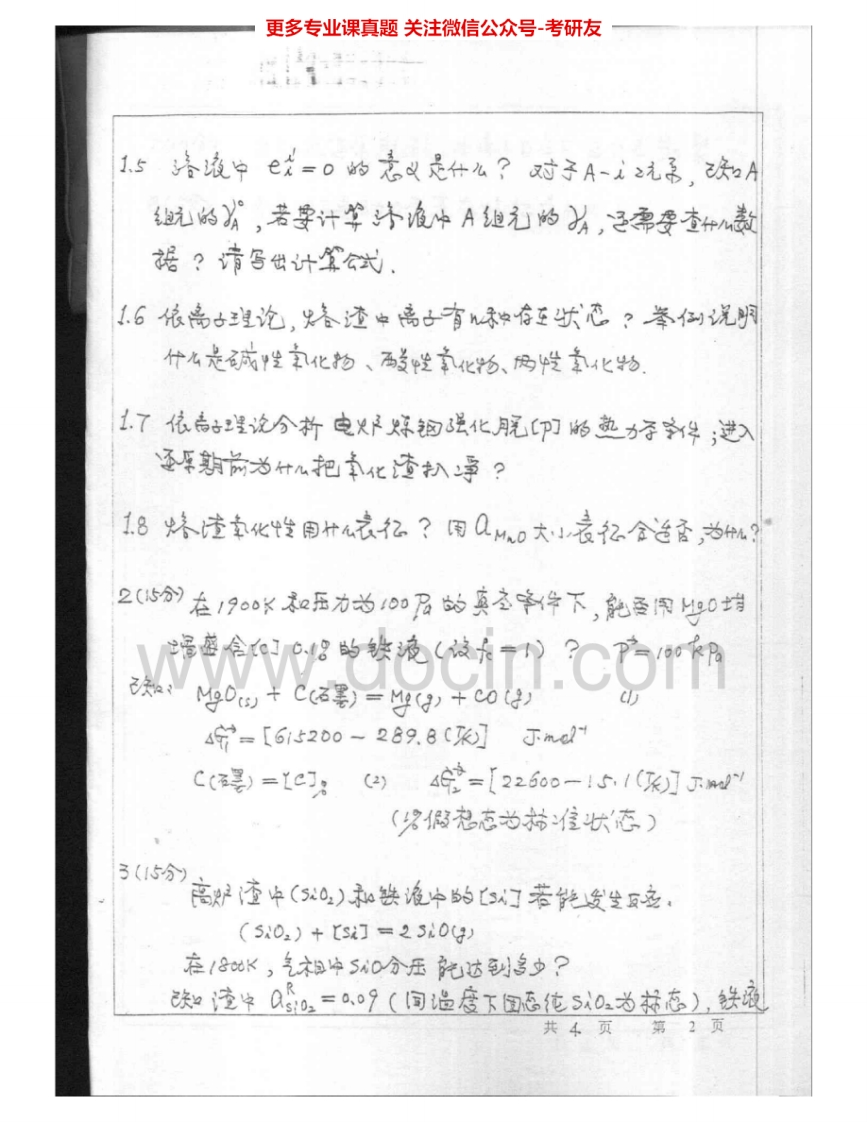 更多专业课真题 关注微信公众号-考研友
1.5 溶液中 eᵢⁱ=0 的意义是什么？对于A-i 二元系，已知A
组元的γ°A，若要计算溶液中A组元的γA，还需要查什么数
据？请写出计算公式.
1.6 依离子理论，熔渣中离子有几种存在状态？举例说明
什么是碱性氧化物、酸性氧化物、两性氧化物.
1.7 依离子理论分析电炉炼钢强化脱[P]的热力学条件；进入
还原期前为什么把氧化渣扒净？
1.8 熔渣氧化性用什么表征？用 aMnO 大小表征合适否，为什么？
2(15分) 在1900K和压力为100Pa的真空条件下，能否用MgO坩
埚盛含[C] 0.1%的铁液（设fc=1）？ P°=100kPa
www.docin.com
已知: MgO(s) + C(石墨) = Mg(g) + CO(g) (1)
ΔG₁° = [615200 - 289.8(T/K)] J·mol⁻¹
C(石墨) = [C]% (2) ΔG₂° = [22600-15.1(T/K)] J·mol⁻¹
（1%假想态为标准状态）
3(15分)
高炉渣中(SiO₂)和铁液中的[Si]若能发生反应.
(SiO₂) + [Si] = 2SiO(g)
在1800K，气相中SiO分压能达到多少？
已知渣中 aᴿSiO₂=0.09（同温度下固态纯SiO₂为标态），铁液
共 4 页 第 2 页